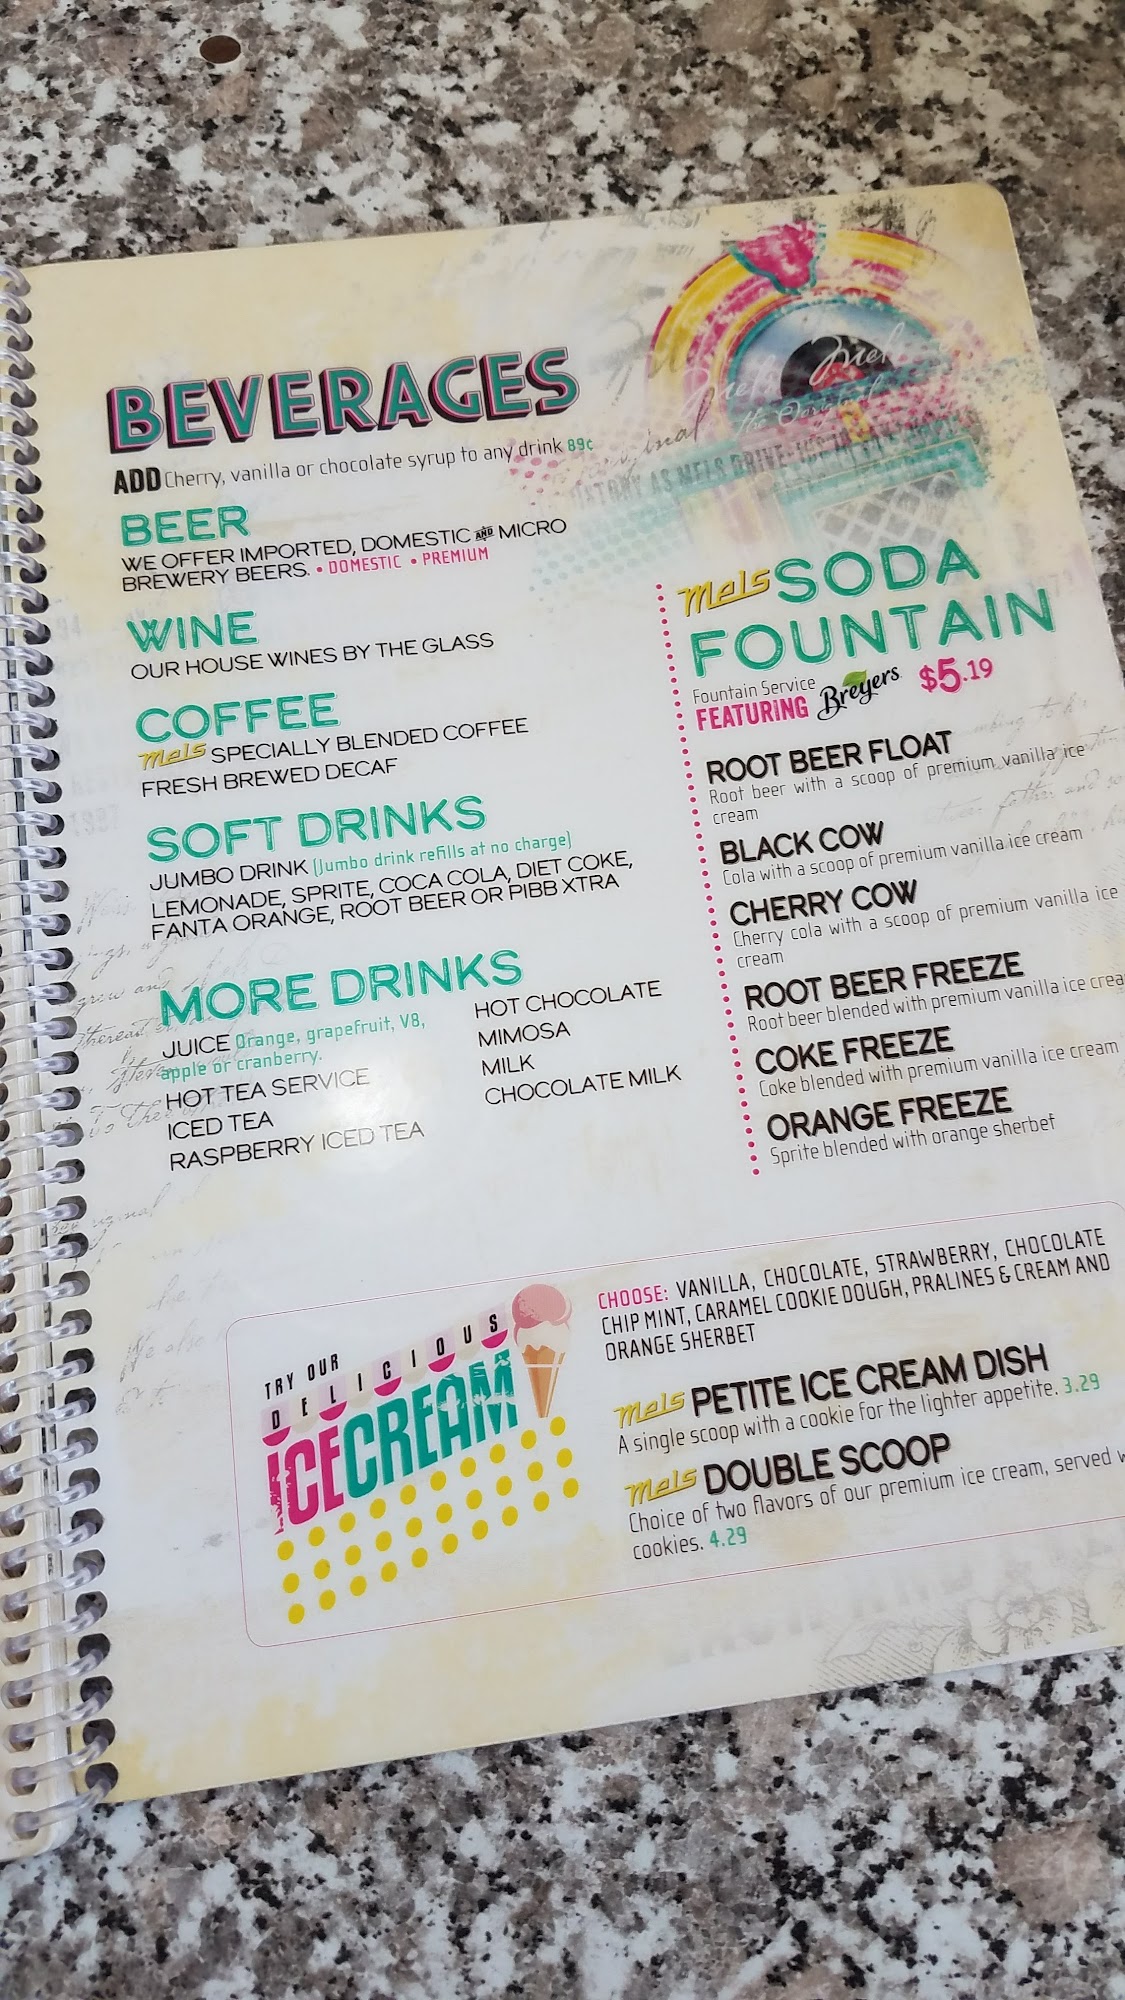 BEVERAGES
ADD Cherry, vanilla or chocolate syrup to any drink 89¢
BEER
WE OFFER IMPORTED, DOMESTIC AND MICRO
BREWERY BEERS. • DOMESTIC • PREMIUM
WINE
OUR HOUSE WINES BY THE GLASS
COFFEE
mels SPECIALLY BLENDED COFFEE
FRESH BREWED DECAF
SOFT DRINKS
JUMBO DRINK (Jumbo drink refills at no charge)
LEMONADE, SPRITE, COCA COLA, DIET COKE,
FANTA ORANGE, ROOT BEER OR PIBB XTRA
MORE DRINKS
JUICE Orange, grapefruit, V8,
apple or cranberry.
HOT TEA SERVICE
ICED TEA
RASPBERRY ICED TEA
HOT CHOCOLATE
MIMOSA
MILK
CHOCOLATE MILK
mels SODA
FOUNTAIN
Fountain Service
FEATURING Breyers $5.19
ROOT BEER FLOAT
Root beer with a scoop of premium vanilla ice
cream
BLACK COW
Cola with a scoop of premium vanilla ice cream
CHERRY COW
Cherry cola with a scoop of premium vanilla ice
cream
ROOT BEER FREEZE
Root beer blended with premium vanilla ice crea
COKE FREEZE
Coke blended with premium vanilla ice cream
ORANGE FREEZE
Sprite blended with orange sherbet
TRY OUR
DELICIOUS
ICE CREAM
CHOOSE: VANILLA, CHOCOLATE, STRAWBERRY, CHOCOLATE
CHIP MINT, CARAMEL COOKIE DOUGH, PRALINES & CREAM AND
ORANGE SHERBET
mels PETITE ICE CREAM DISH
A single scoop with a cookie for the lighter appetite. 3.29
mels DOUBLE SCOOP
Choice of two flavors of our premium ice cream, served w
cookies. 4.29